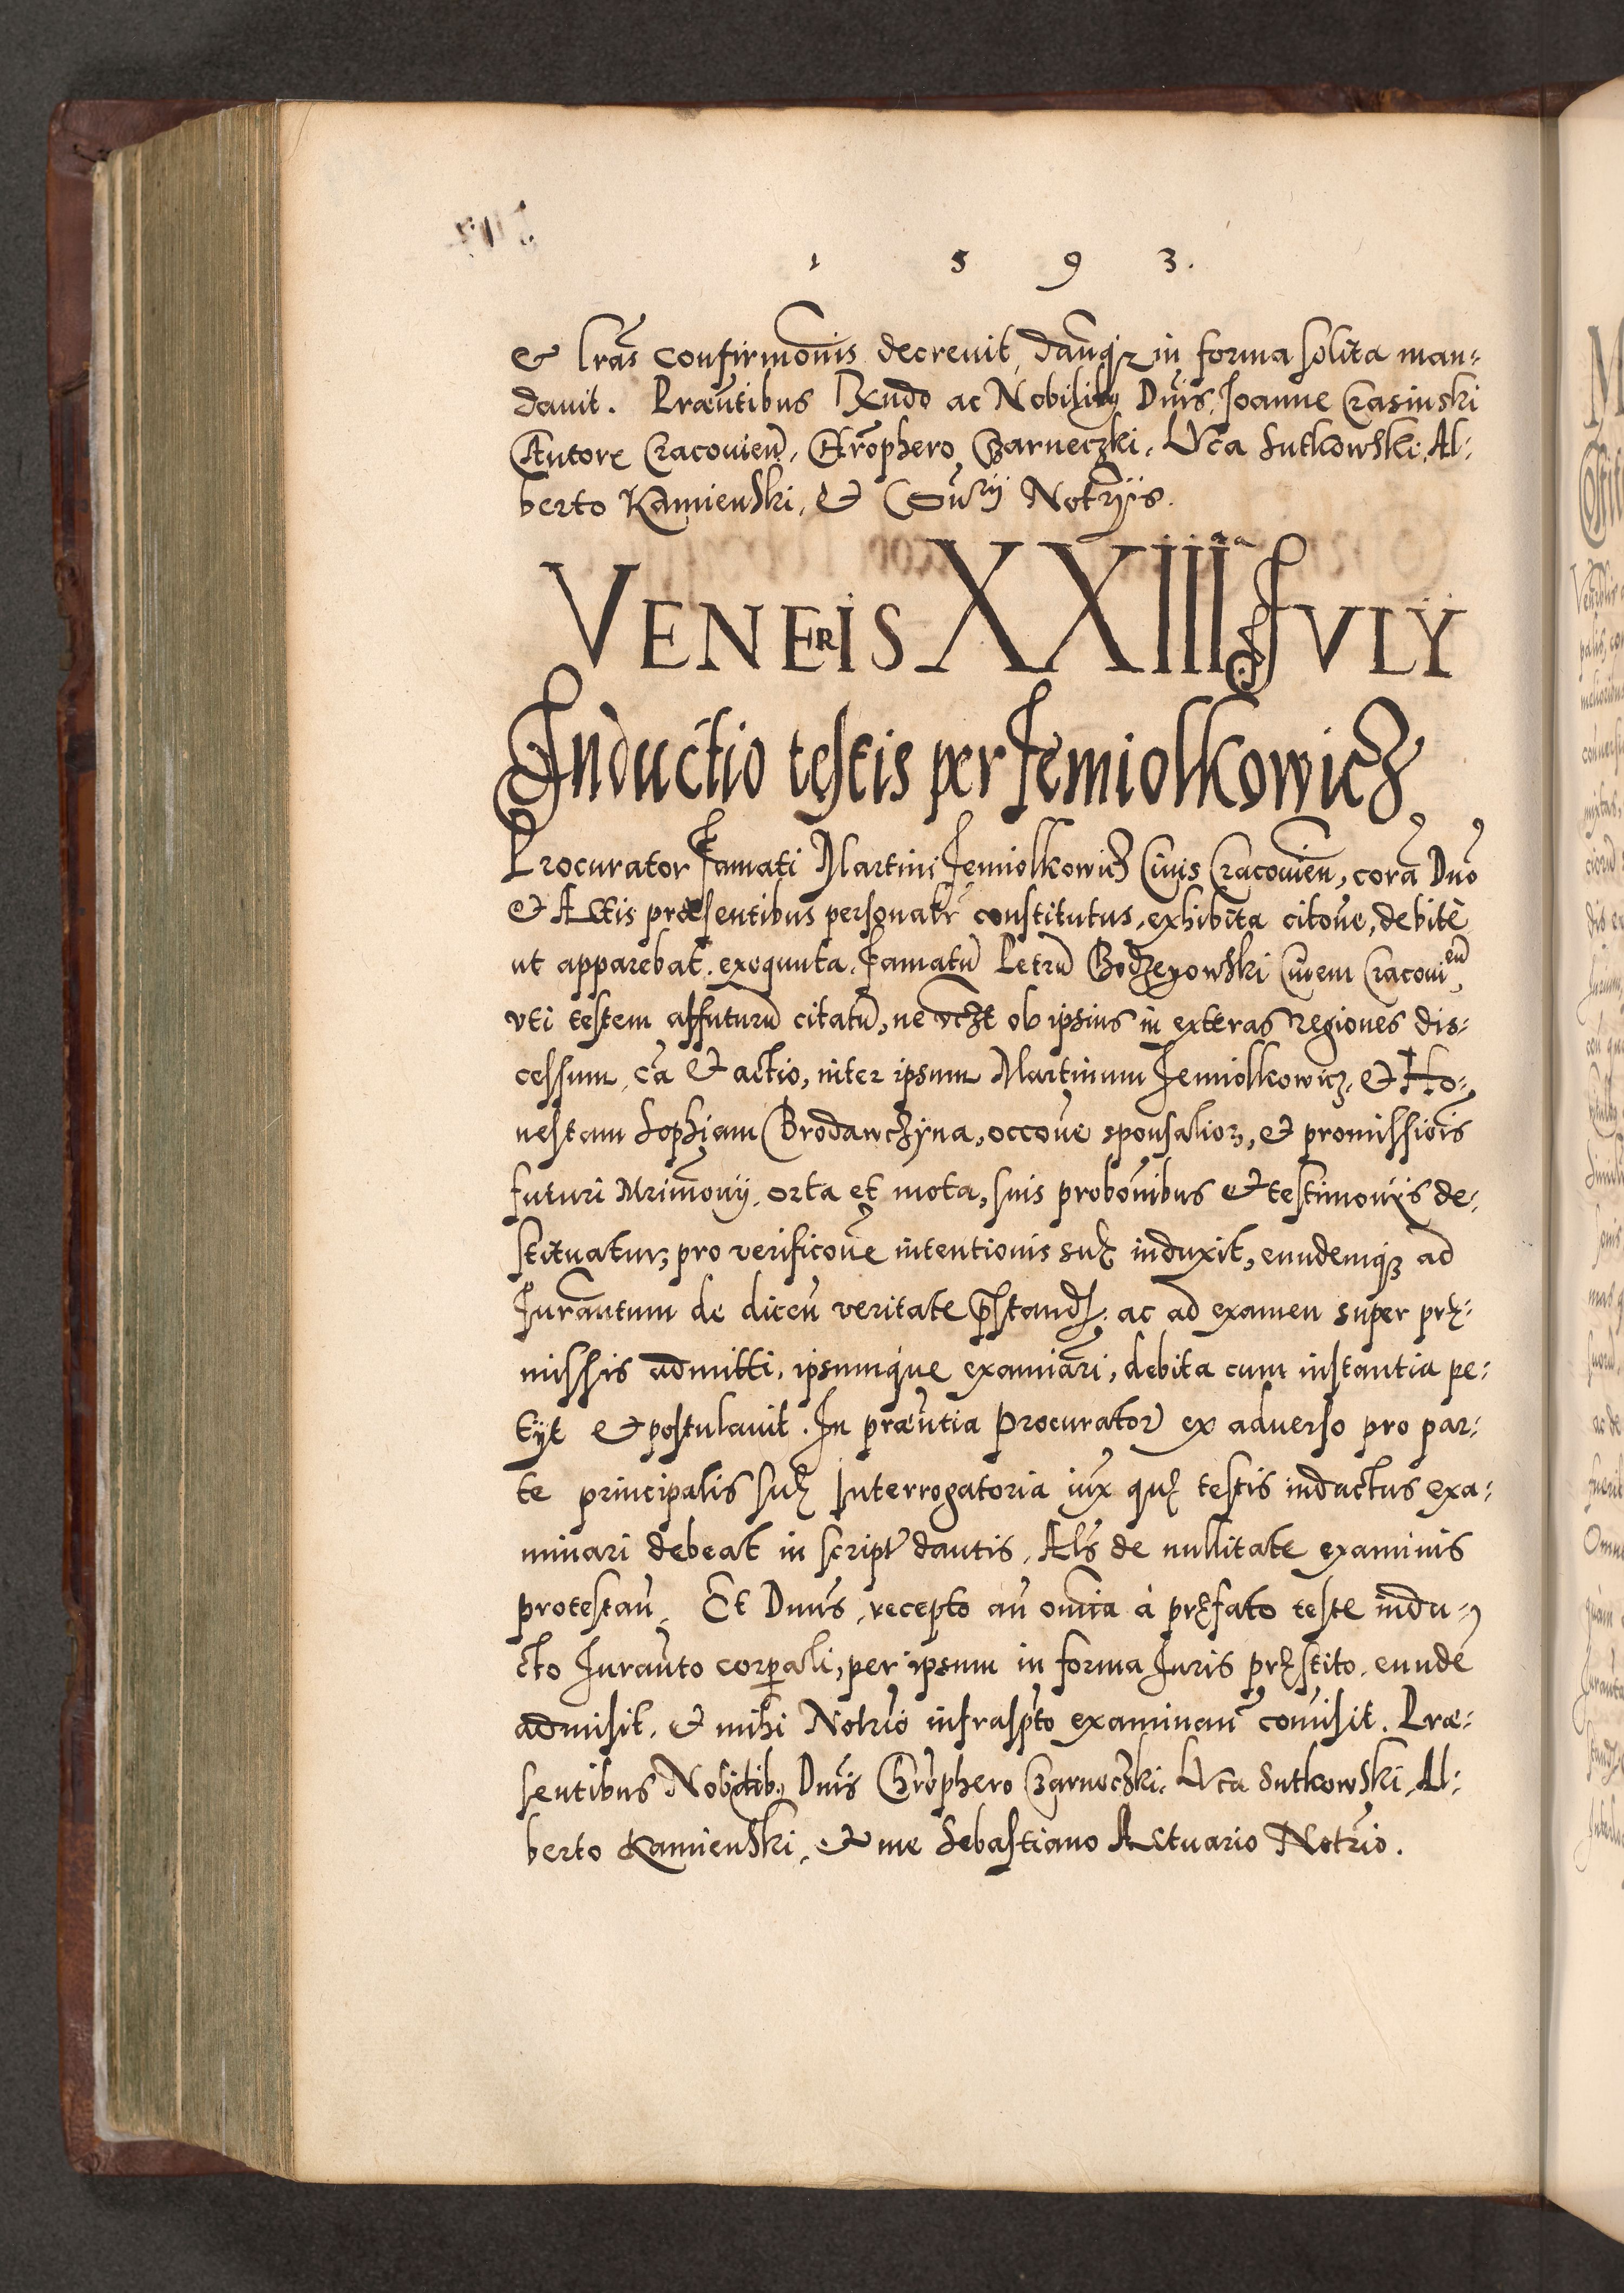 1 5 9 3.
& lrãs confirmõnis decreuit, dãnq꞉ in forma solita man⸗
dauit. Præñtibus Rx̃ndo ac Nobilibꝫ Dnĩs, Joanne Crasinski
Cantore Cracouieñ, Chrõphero Czarneczki, Luca Sutkowski, Al⸗
berto Kamienski, & Notrÿs.
VENERIS XXIIII IVLY
Inductio testis per Jemiolkowicz
Procurator Famati Martini Jemiolkowicz Ciuis Cracouieñ, corã Dnõ
& Actis præsentibus personatr̃ constitutus, exhibita citõne, debite
ut apparebat, exequuta, Famatũ Petrũ Bodzenowski Ciuem Cracouieñ,
vti testem affuturũ citatũ, ne ob ipsius in exteras regiones dis⸗
cessum, cã & actio, inter ipsum Martinum Jemiolkowicz, & Ho⸗
nestam Sophiam Brodawczyna, occõne sponsalioꝝ, & promissiõis
futuri Mrimõnij, orta et mota, suis probõnibus & testimonÿs de⸗
stituatur, pro verificõne intentionis suę induxit, eundemqꝫ ad
Jurãntum de diceñ veritate p̃standũ, ac ad examen super prę⸗
missis admitti, ipsumque examiãri, debita cum instantia pe⸗
tÿt & postulauit. In præñtia Procurator̃ ex aduerso pro par⸗
te principalis suę Interrogatoria iux̃ quę testis inductus exa⸗
minari debeat in script̃ dantis, Als̃ de nullitate examinis
protestañ. Et Dnũs, recepto añ omĩa à pręfato teste indu⸗
cto Jurãnto corpãli, per ipsum in forma Juris pręstito, eundẽ
admisit, & mihi Notriõ infrasp̃to examinañ com̃isit. Præ⸗
sentibus Nobilibꝫ Dnĩs Chrõphero Czarneczki, Luca Sutkowski, Al⸗
berto Kamienski, & me Sebastiano Actuario Notriõ.